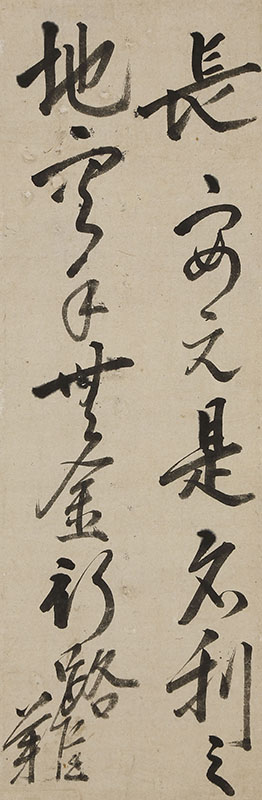 長安元是名利之
地空手無金行路難